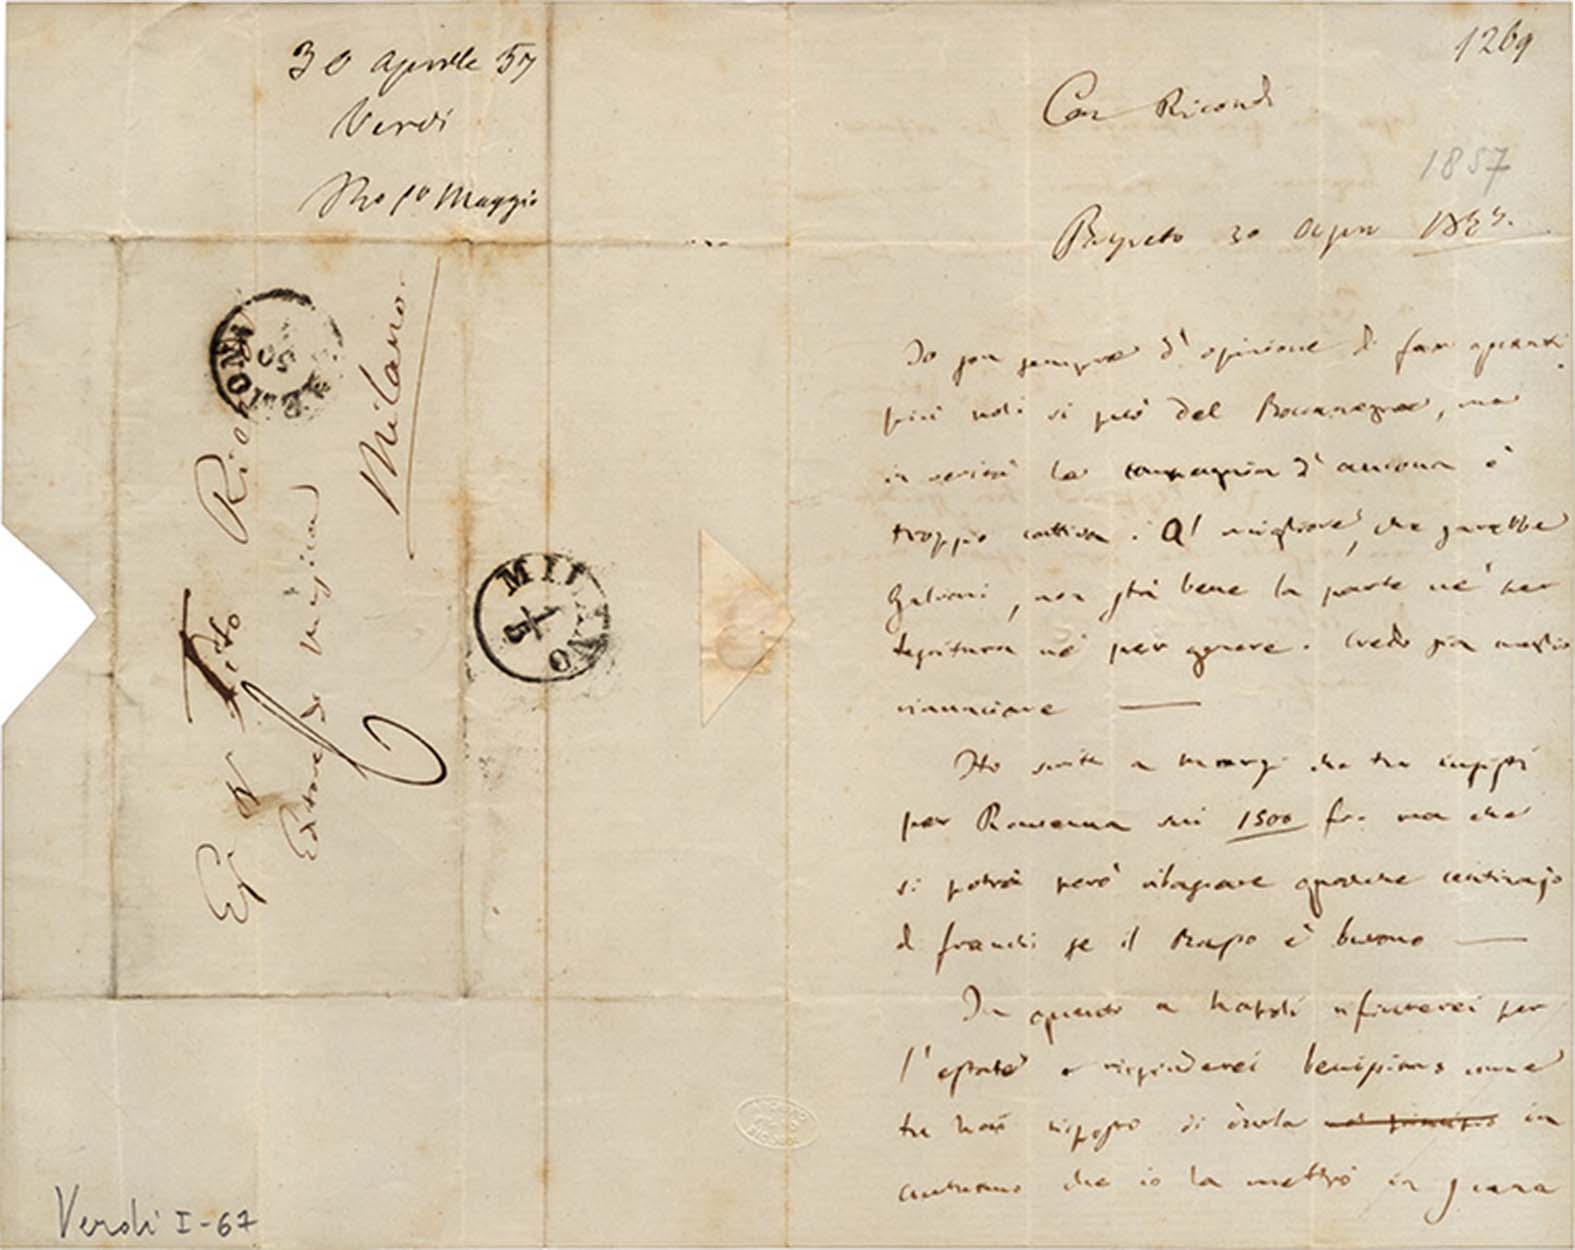 30 Aprile 57
Verdi
Rº 1º Maggio
Tito
Editore di Musica
Milano
MILANO
1/5
Verdi I-67
1269
Car Ricordi
1857
Busseto 30 Apri 1857.
Io son sempre d'opinione di far quanti
più noli si può del Boccanegra, ma
in verità la compagnia d'ancona è
troppo cattiva. Al migliore, che sarebbe
, non stà bene la parte nè per
tessitura nè per genere. Credo sia meglio
rinunciare —
Ho scritto a Marzi che tu
per Ravenna sui 1500 fr. ma che
si potrà però ribassare qualche centinajo
di franchi se il Basso è buono —
In quanto a Napoli rifiuterei per
l'estate e risponderei benissimo come
tu hai risposto di darla in
autunno che io la metterò in scena